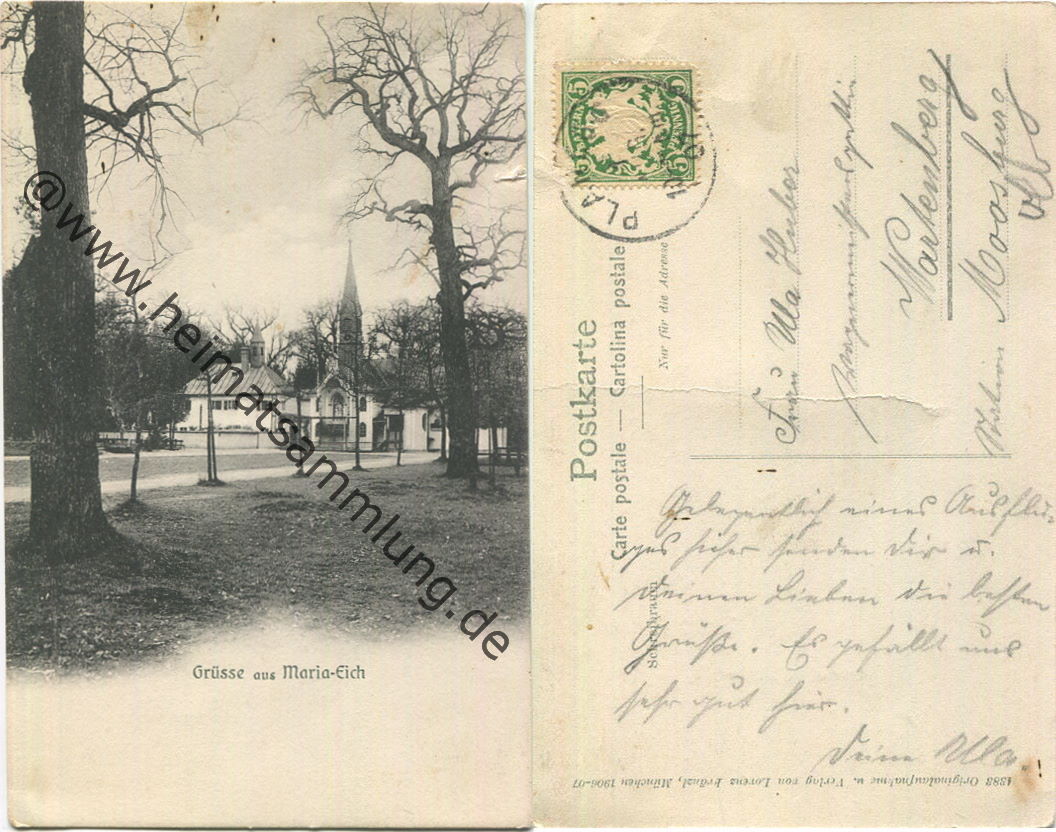 Grüsse aus Maria-Eich
@www.heimatsammlung.de
Postkarte
Carte postale — Cartolina postale
Nur für die Adresse
Schreibraum
PLA
Frau Ula Huber
Wartenberg
Station Moosburg
Gelegentlich eines Ausflu-
ges hieher senden Dir u.
Deinen Lieben die besten
Grüße. Es gefällt uns
sehr gut hier.
Deine Ula.
4383 Originalaufnahme u. Verlag von Lorenz Fränzl, München 1906-07